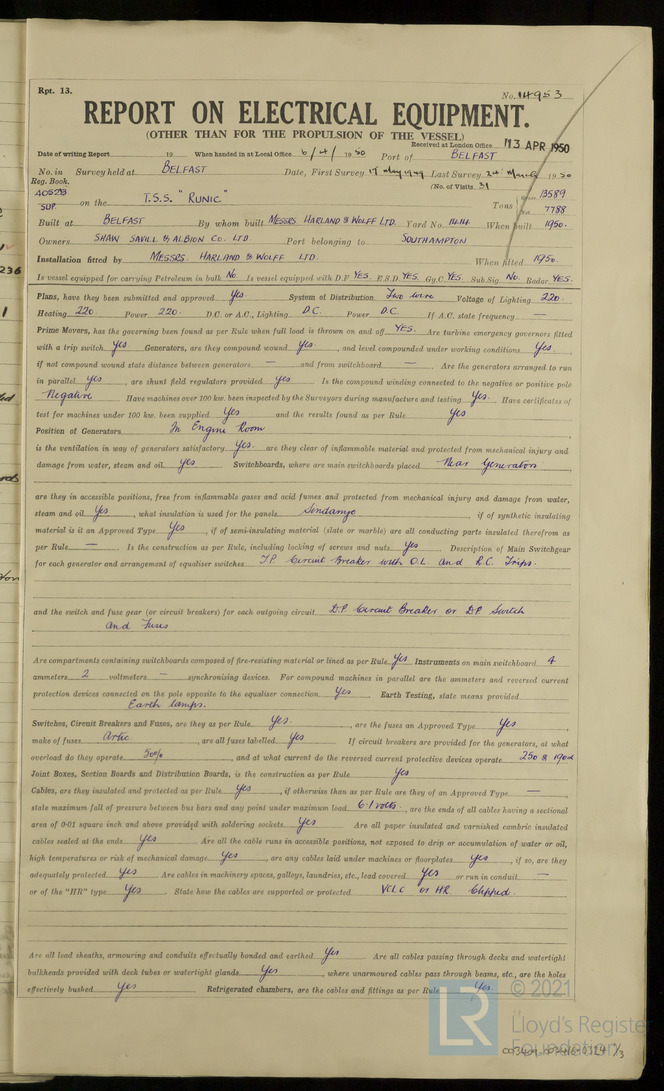 Rpt. 13.
No. 14953
REPORT ON ELECTRICAL EQUIPMENT.
(OTHER THAN FOR THE PROPULSION OF THE VESSEL)
Received at London Office 13 APR 1950
Date of writing Report 19 When handed in at Local Office 6/4/1950 Port of BELFAST
No. in Survey held at BELFAST Date, First Survey 17 May 1949 Last Survey 24 March 1950
Reg. Book. (No. of Visits 31
40528 SUP on the T.S.S. "RUNIC" Tons 13589
7788
Built at BELFAST By whom built MESSRS HARLAND & WOLFF LTD. Yard No. 1414 When built 1950.
Owners SHAW SAVILL & ALBION CO. LTD Port belonging to SOUTHAMPTON
Installation fitted by MESSRS. HARLAND & WOLFF LTD. When fitted 1950.
Is vessel equipped for carrying Petroleum in bulk No. Is vessel equipped with D.F YES. E.S.D YES. Gy.C. YES. Sub.Sig. No. Radar YES.
Plans, have they been submitted and approved Yes. System of Distribution Two wire Voltage of Lighting 220.
Heating 220 Power 220. D.C. or A.C., Lighting D.C. Power D.C. If A.C. state frequency —
Prime Movers, has the governing been found as per Rule when full load is thrown on and off YES. Are turbine emergency governors fitted
with a trip switch Yes. Generators, are they compound wound Yes. , and level compounded under working conditions Yes. ,
if not compound wound state distance between generators — and from switchboard — Are the generators arranged to run
in parallel Yes , are shunt field regulators provided Yes Is the compound winding connected to the negative or positive pole
Negative Have machines over 100 kw. been inspected by the Surveyors during manufacture and testing Yes. Have certificates of
test for machines under 100 kw. been supplied Yes and the results found as per Rule Yes
Position of Generators In Engine Room
is the ventilation in way of generators satisfactory Yes. are they clear of inflammable material and protected from mechanical injury and
damage from water, steam and oil. Yes Switchboards, where are main switchboards placed Near Generators
are they in accessible positions, free from inflammable gases and acid fumes and protected from mechanical injury and damage from water,
steam and oil Yes , what insulation is used for the panels Sindanyo , if of synthetic insulating
material is it an Approved Type Yes , if of semi-insulating material (slate or marble) are all conducting parts insulated therefrom as
per Rule — Is the construction as per Rule, including locking of screws and nuts Yes Description of Main Switchgear
for each generator and arrangement of equaliser switches T.P. Circuit Breaker with O.L. and R.C. Trips.
and the switch and fuse gear (or circuit breakers) for each outgoing circuit D.P Circuit Breaker or D.P Switch
and Fuses
Are compartments containing switchboards composed of fire-resisting material or lined as per Rule Yes Instruments on main switchboard 4
ammeters 2 voltmeters — synchronising devices. For compound machines in parallel are the ammeters and reversed current
protection devices connected on the pole opposite to the equaliser connection Yes Earth Testing, state means provided
Earth lamps.
Switches, Circuit Breakers and Fuses, are they as per Rule Yes. , are the fuses an Approved Type Yes ,
make of fuses Artic , are all fuses labelled Yes If circuit breakers are provided for the generators, at what
overload do they operate 50% , and at what current do the reversed current protective devices operate
Joint Boxes, Section Boards and Distribution Boards, is the construction as per Rule Yes
Cables, are they insulated and protected as per Rule Yes , if otherwise than as per Rule are they of an Approved Type —
state maximum fall of pressure between bus bars and any point under maximum load 6.1 volts. , are the ends of all cables having a sectional
area of 0·01 square inch and above provided with soldering sockets Yes Are all paper insulated and varnished cambric insulated
cables sealed at the ends Yes Are all the cable runs in accessible positions, not exposed to drip or accumulation of water or oil,
high temperatures or risk of mechanical damage Yes , are any cables laid under machines or floorplates Yes , if so, are they
adequately protected Yes Are cables in machinery spaces, galleys, laundries, etc., lead covered Yes or run in conduit —
or of the "HR" type Yes State how the cables are supported or protected VCLC or HR Clipped.
Are all lead sheaths, armouring and conduits effectually bonded and earthed Yes Are all cables passing through decks and watertight
bulkheads provided with deck tubes or watertight glands Yes , where unarmoured cables pass through beams, etc., are the holes
effectively bushed Yes Refrigerated chambers, are the cables and fittings as per Rule Yes.
© 2021
LR
Lloyd's Register
Foundation
1/3
236